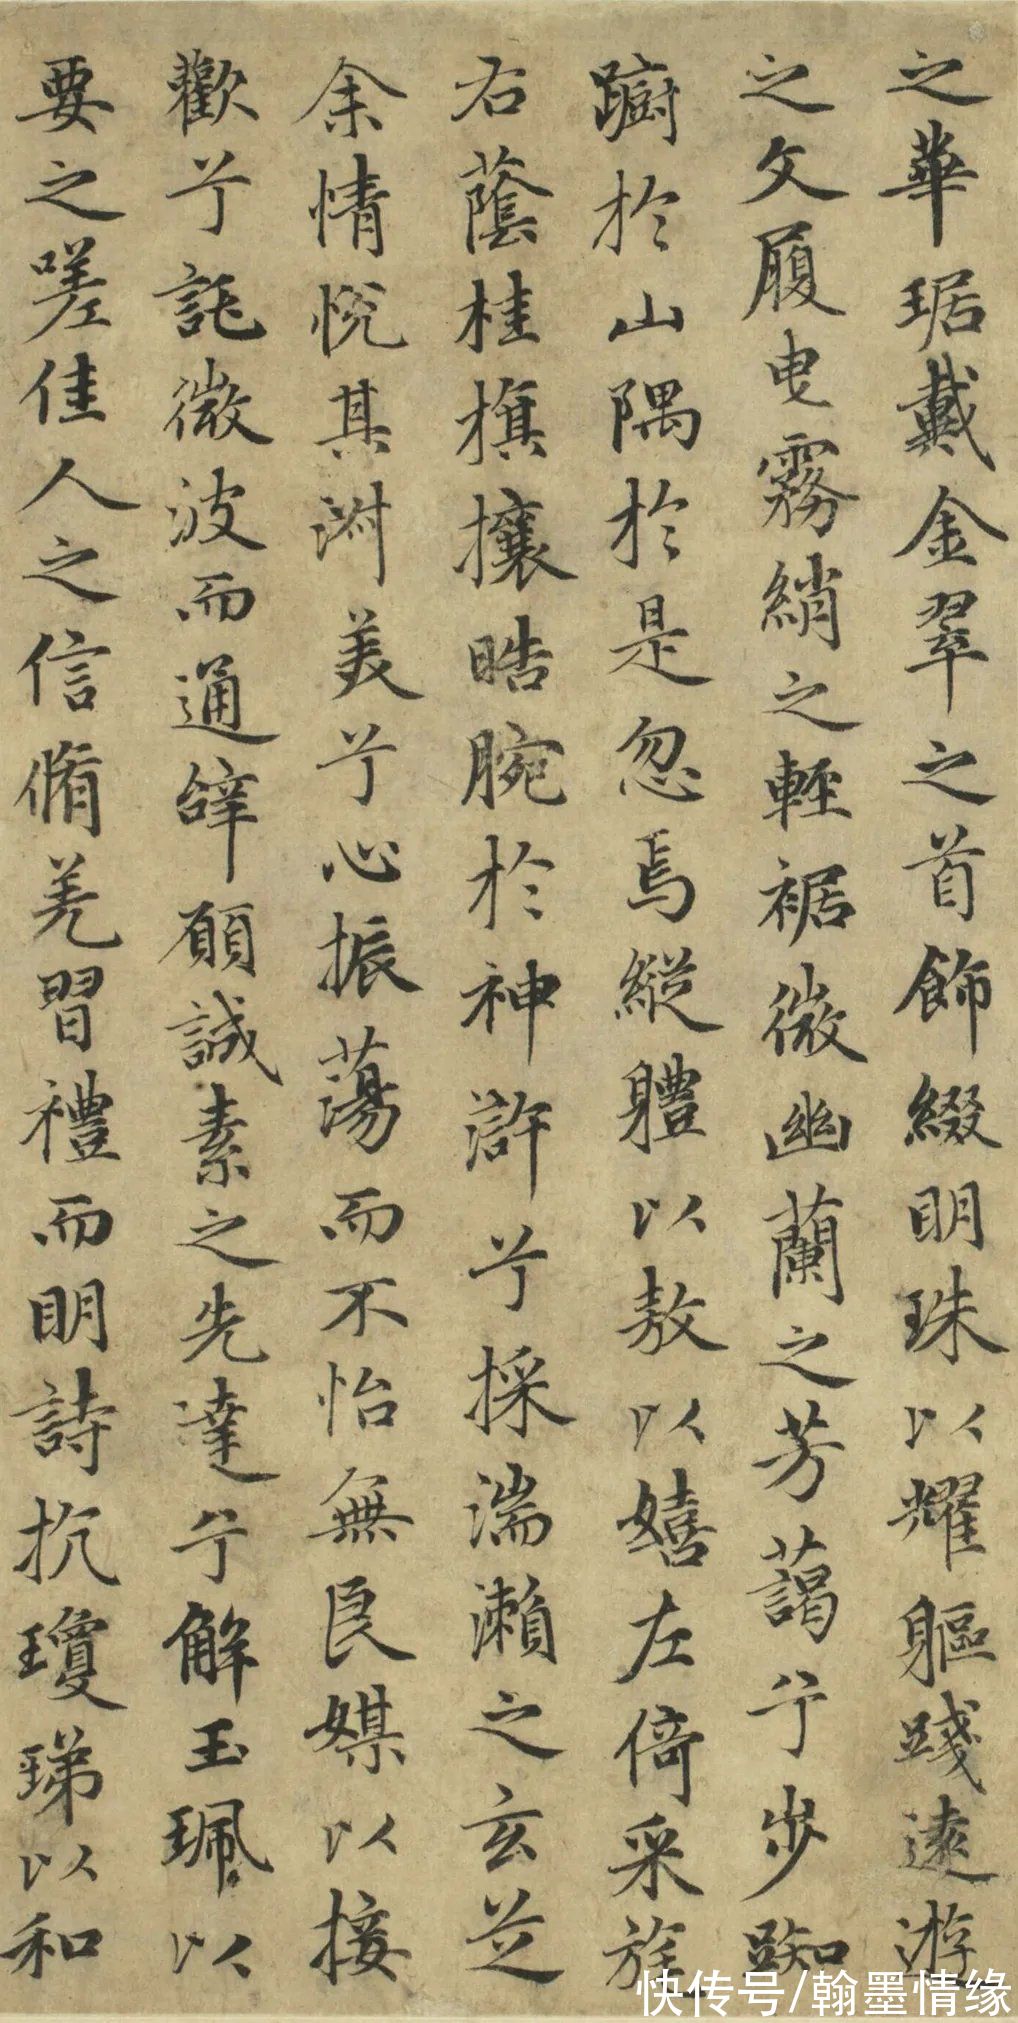 之華琚戴金翠之首飾綴明珠以耀軀踐遠遊
之文履曳霧綃之輕裾微幽蘭之芳藹兮步踟
躕於山隅於是忽焉縱軆以敖以嬉左倚采旄
右蔭桂旗攘皓腕於神滸兮採湍瀨之玄芝
余情悅其淑美兮心振蕩而不怡無良媒以接
歡兮託微波而通辝願誠素之先達兮解玉珮以
要之嗟佳人之信脩羌習禮而明詩抗瓊珶以和
快传号/翰墨情缘